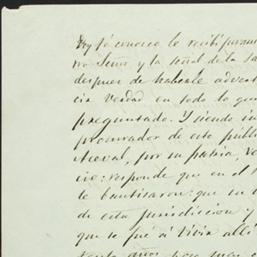 Doy fé conosco le recibí juramen
tro Señor y la señal de la Sa
despues de haberle advert
cir verdad en todo lo que
preguntado. Y siendo in
procurador de este pueblo
Aceval, por su patria, ve
cio: responde que en el
le bautisaron: que su
de esta jurisdiccion y
que se fué á vivir allí
años